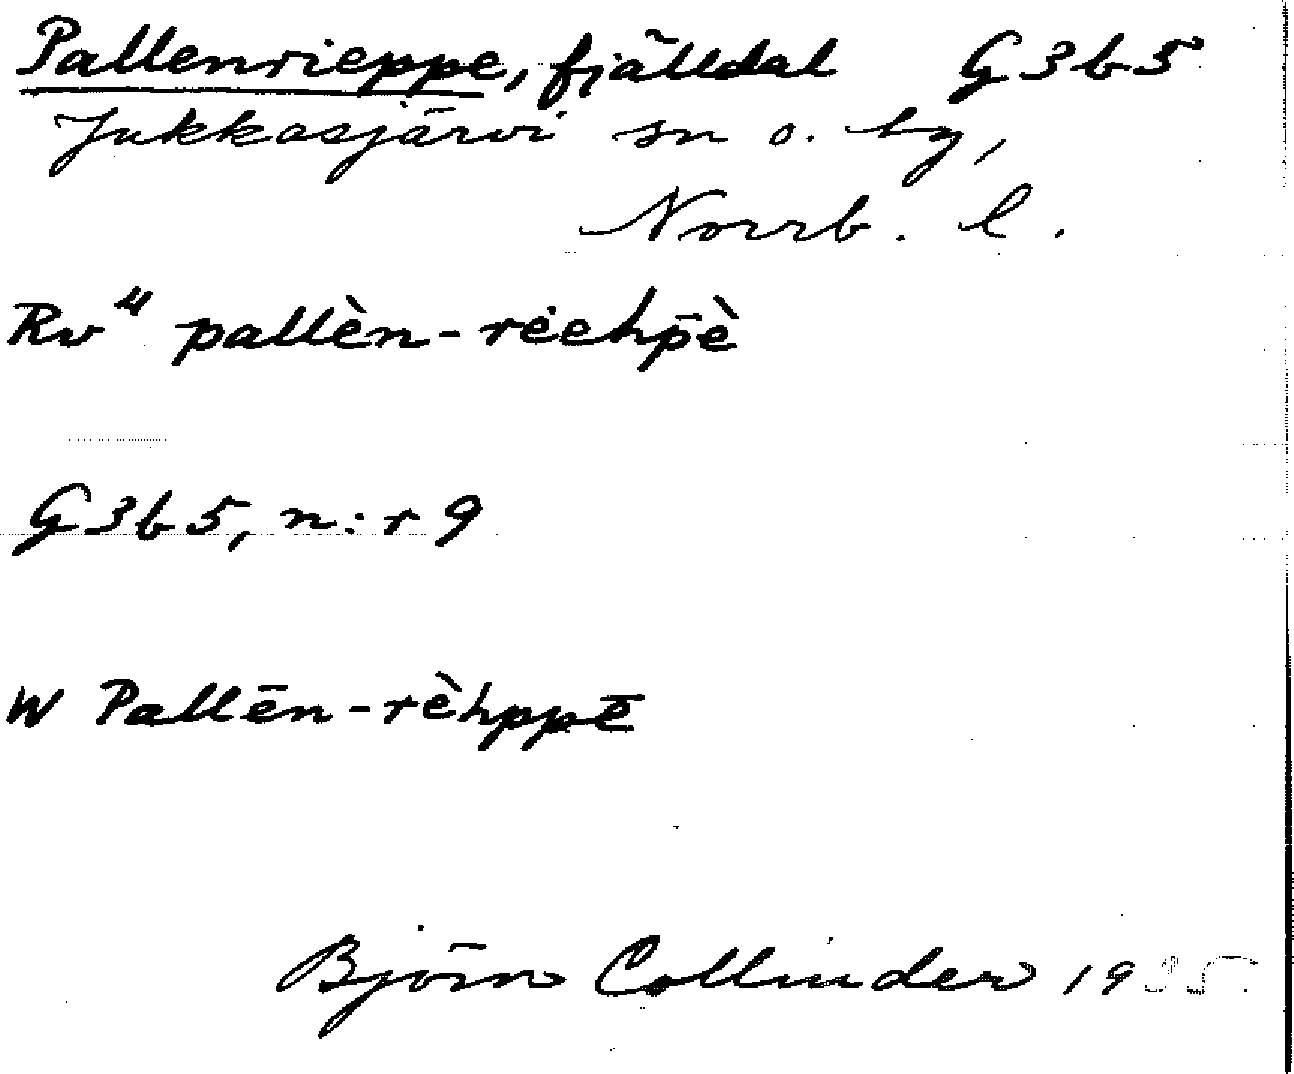 Pallenrieppe, fjälldal G3b5
Jukkasjärvi sn o. by,
Norrb. l.
Rv" pallèn-rèehp̄è
G3b5, n:r 9
W Pallēn-rèhppē
Björn Collinder